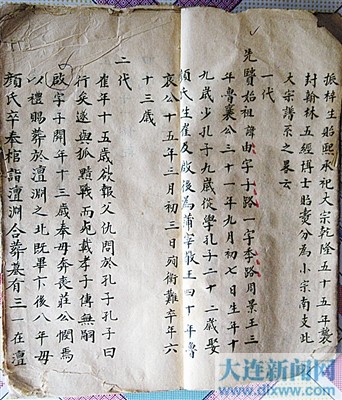 振梓生貽熙承祀大宗乾隆五十五年襲
封翰林五經博士貽賚分為小宗南支此
大宗譜系之畧云
一代
先賢始祖諱由字子路一字季路周景王三
年魯襄公三十一年九月初七日生年十
九歲少孔子九歲從學孔子二十二歲娶
顏氏生崔及啟後為蒲宰敬王四十年魯
哀公十五年三月初三日殉衛難卒年六
十三歲
二代
崔年十五歲欲報父仇問於孔子孔子曰
行矣遂與狐黯戰而死載孝子傳無嗣
啟字子開年十三歲奉母奔喪莊公憫焉
以禮賜葬於澶淵之北既畢卞後八年母
顏氏卒奉棺詣澶淵合葬墓有三一在澶
大连新闻网
www.dlxww.com